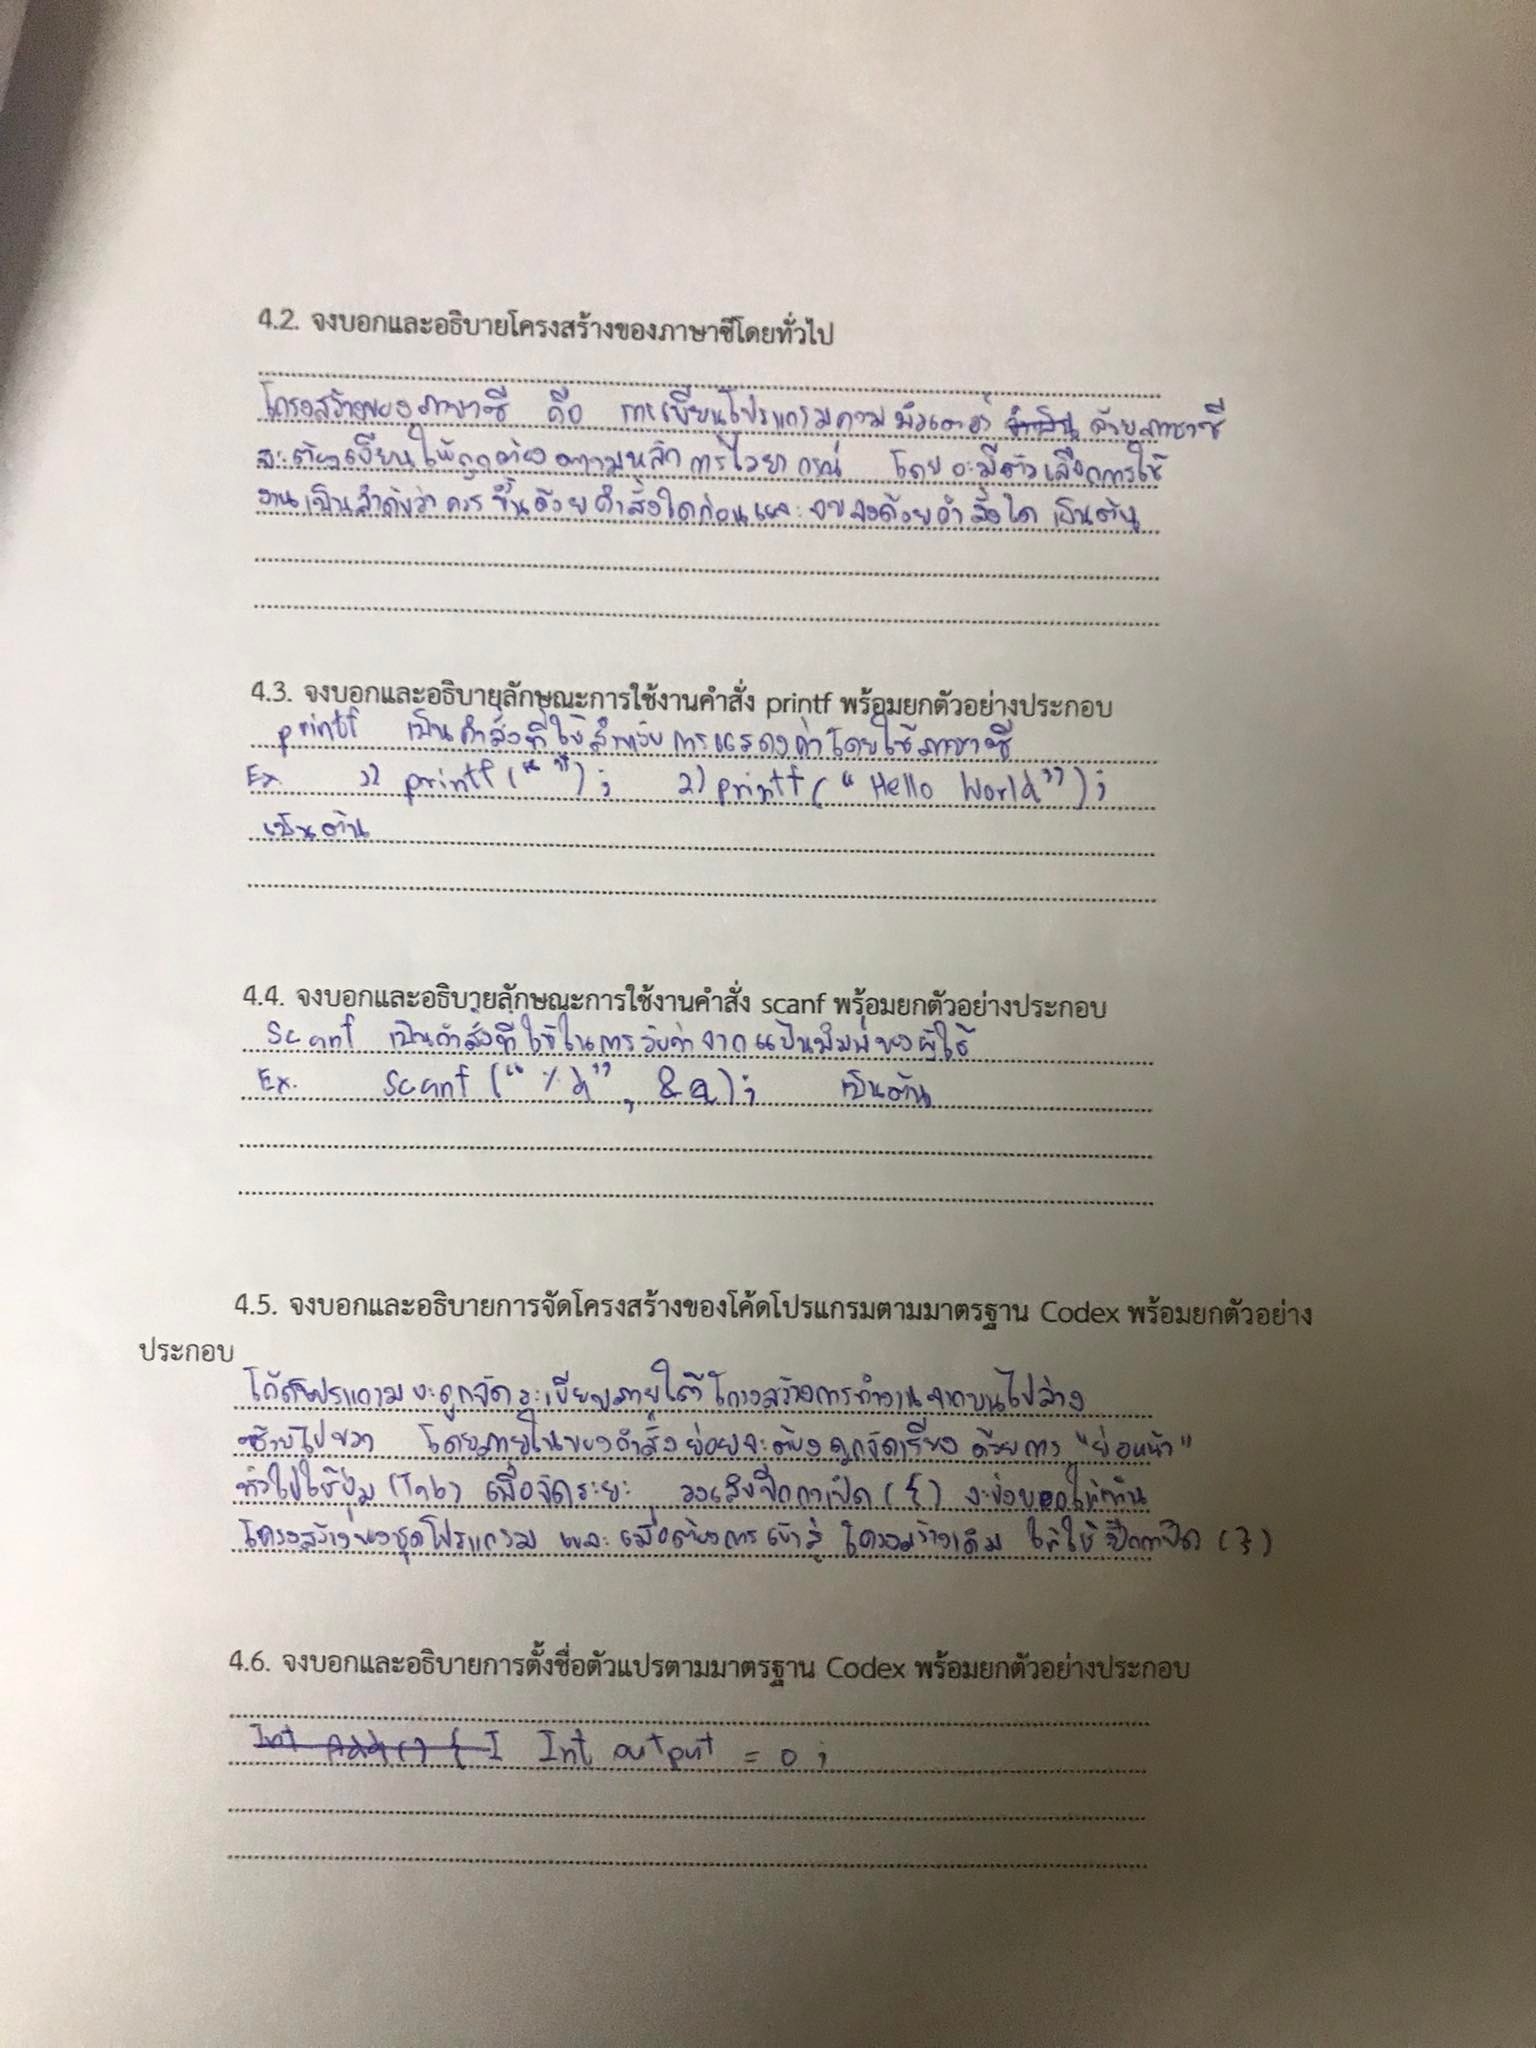 4.2. จงบอกและอธิบายโครงสร้างของภาษาซีโดยทั่วไป
โครงสร้างของภาษาซี คือ การเขียนโปรแกรมคอมพิวเตอร์ ด้วยภาษาซี
จะต้องเขียนให้ถูกต้องตามหลักการไวยากรณ์ โดยจะมีตัวเลือกการใช้
งานเป็นลำดับว่าควรขึ้นด้วยคำสั่งใดก่อนและจบลงด้วยคำสั่งใด เป็นต้น
4.3. จงบอกและอธิบายลักษณะการใช้งานคำสั่ง printf พร้อมยกตัวอย่างประกอบ
printf เป็นคำสั่งที่ใช้สำหรับการแสดงค่าโดยใช้ภาษาซี
Ex. 1) printf(“ ”); 2) printf(“Hello World”);
เป็นต้น
4.4. จงบอกและอธิบายลักษณะการใช้งานคำสั่ง scanf พร้อมยกตัวอย่างประกอบ
Scanf เป็นคำสั่งที่ใช้ในการรับค่าจากแป้นพิมพ์ของผู้ใช้
Ex. Scanf (“%d”, &a); เป็นต้น
4.5. จงบอกและอธิบายการจัดโครงสร้างของโค้ดโปรแกรมตามมาตรฐาน Codex พร้อมยกตัวอย่าง
ประกอบ
โค้ดโปรแกรมจะถูกจัดระเบียบภายใต้โครงสร้างการทำงานจากบนไปล่าง
ซ้ายไปขวา โดยภายในของคำสั่งย่อยจะต้องถูกจัดเรียงด้วยการ "ย่อหน้า"
ทั่วไปใช้ปุ่ม (Tab) เพื่อจัดระยะ วงเล็บปีกกาเปิด ({) จะบ่งบอกให้ท่าน
โครงสร้างของชุดโปรแกรม และเมื่อต้องการเข้าสู่โครงสร้างเดิม ให้ใช้ปีกกาปิด (})
4.6. จงบอกและอธิบายการตั้งชื่อตัวแปรตามมาตรฐาน Codex พร้อมยกตัวอย่างประกอบ
Int Add() { I Int output = 0;